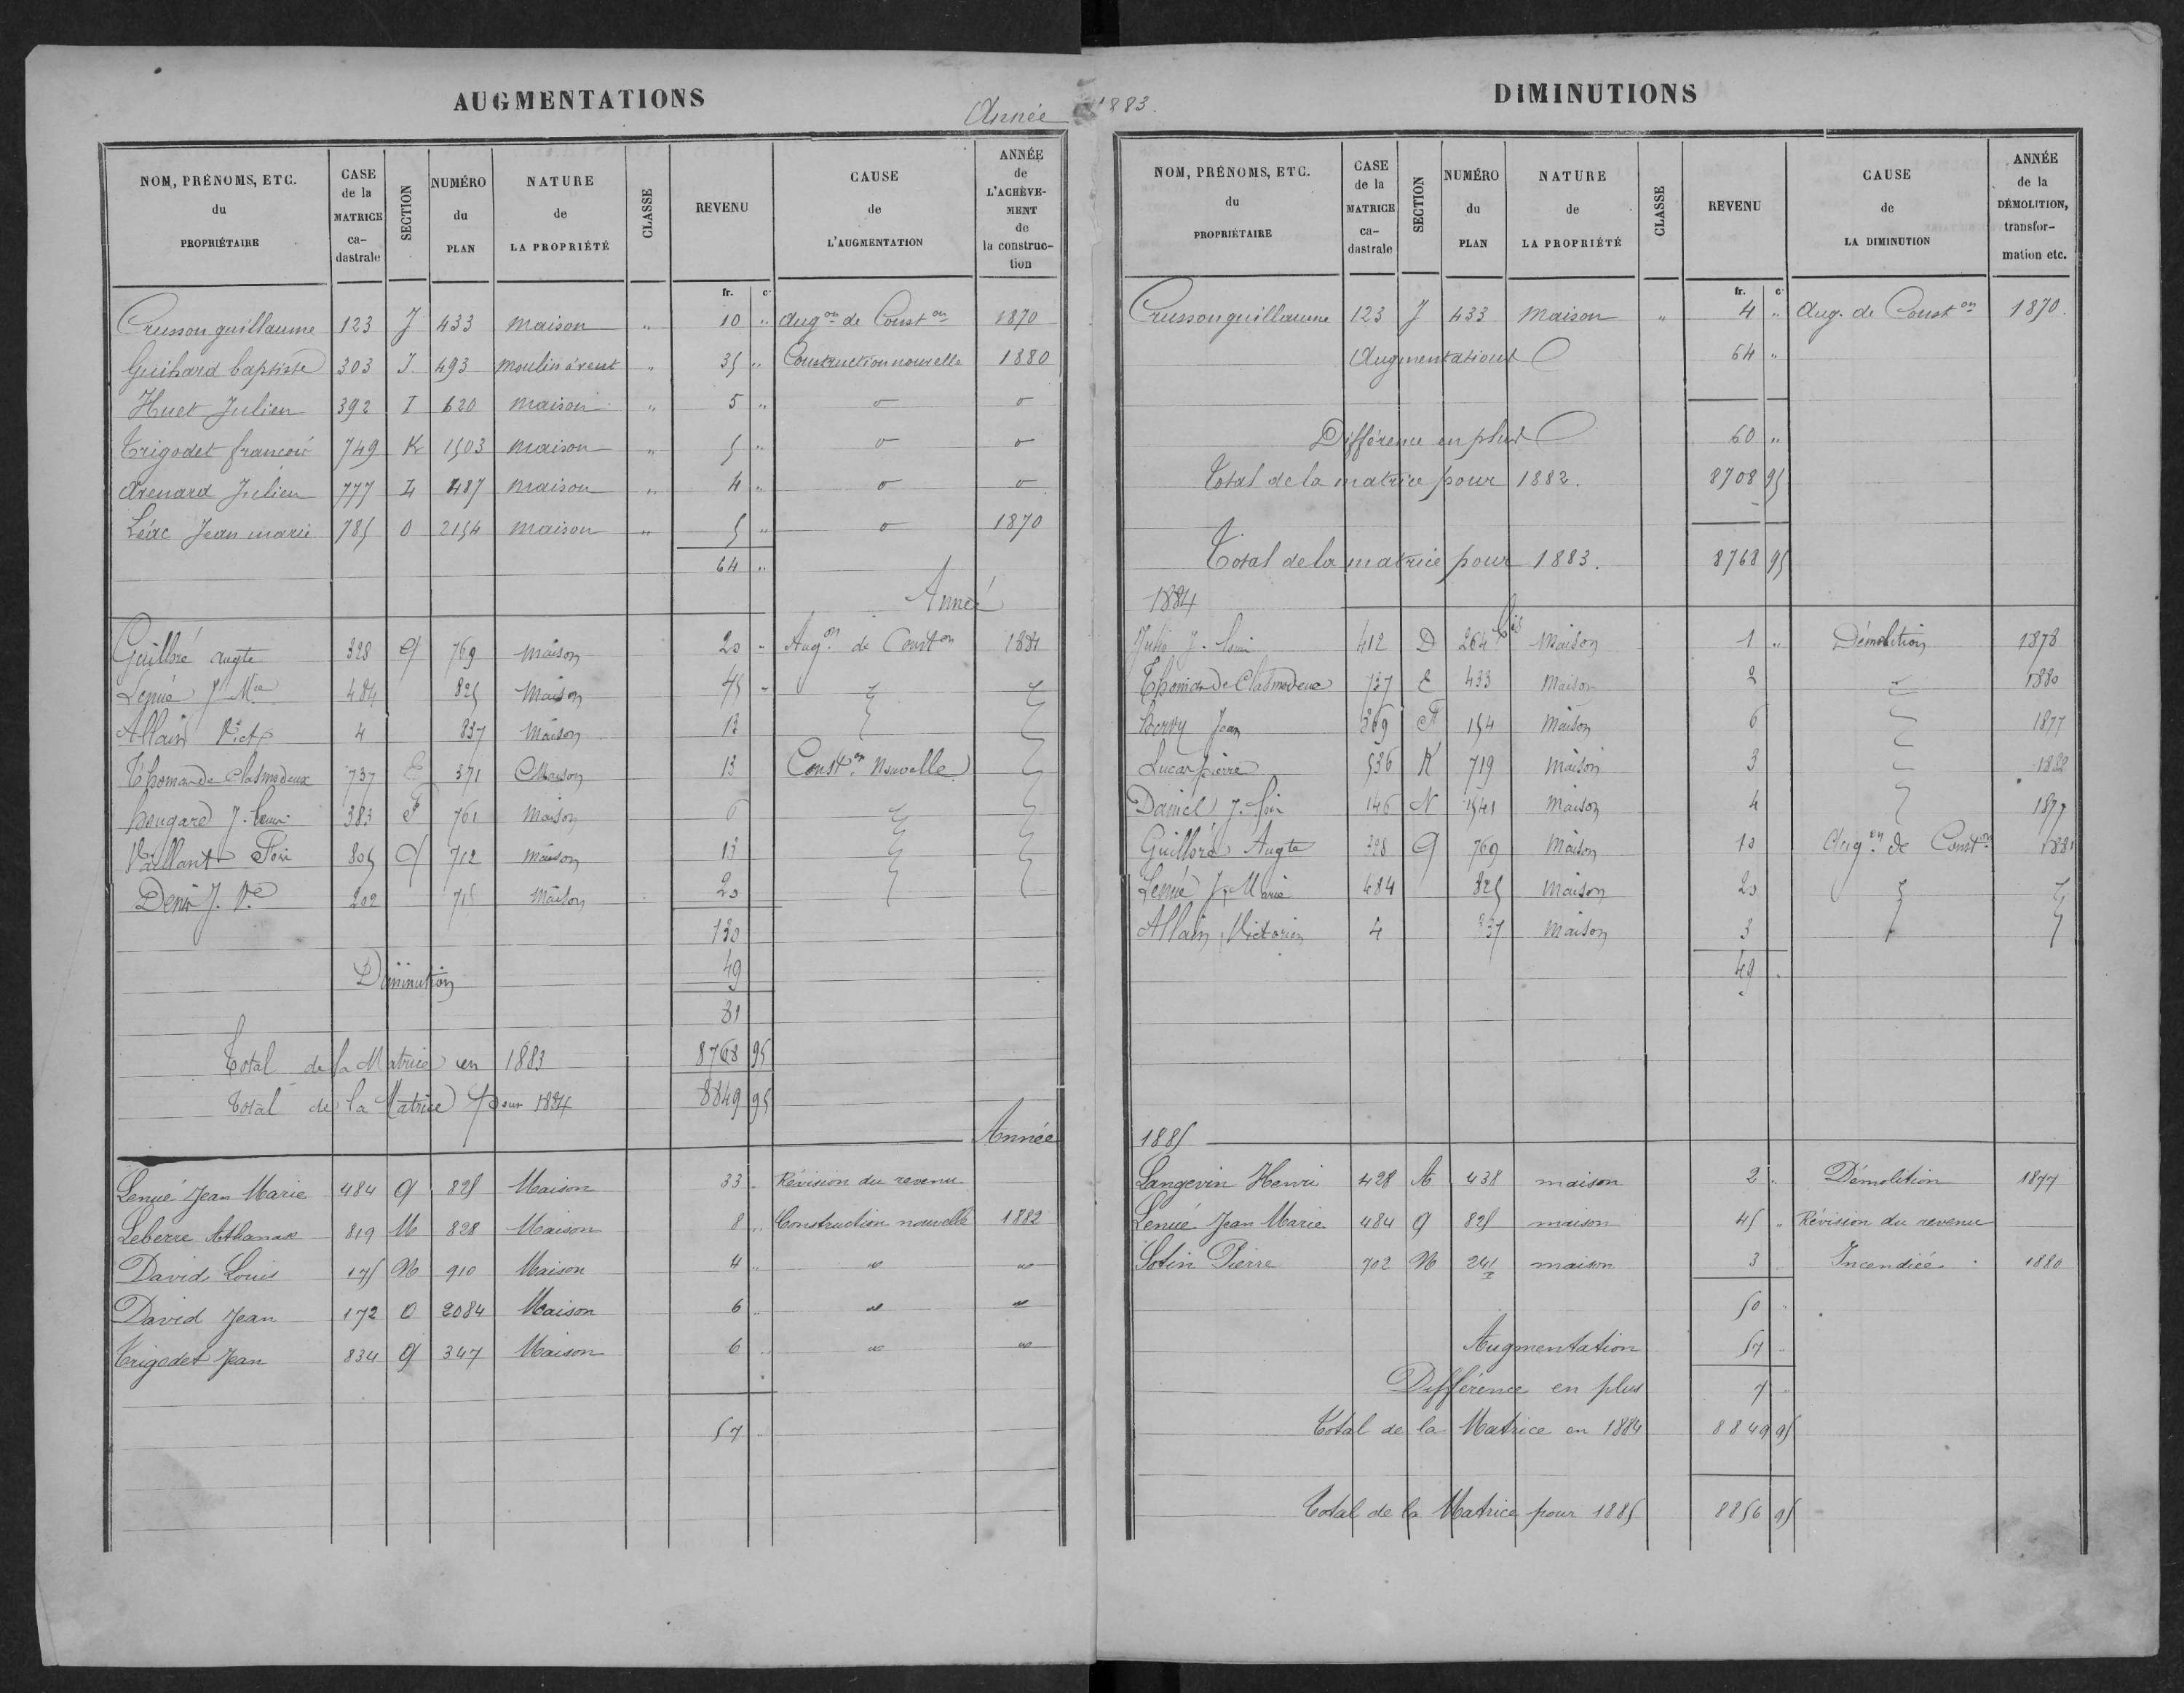 AUGMENTATIONS
Année 1883.
NOM, PRÉNOMS, ETC. du PROPRIÉTAIRE | CASE de la MATRICE ca-dastrale | SECTION | NUMÉRO du PLAN | NATURE de LA PROPRIÉTÉ | CLASSE | REVENU | CAUSE de L'AUGMENTATION | ANNÉE de L'ACHÈVE-MENT de la construc-tion
fr. c.
Crusson guillaume 123 J 433 maison " 10 " Augon de Conston 1870
Guihard baptiste 303 J. 493 moulin à vent " 35 " Construction nouvelle 1880
Huet Julien 392 I 620 maison " 5 " o o
Trigodet francois 749 K 1503 maison " 5 " o o
Arenard Julien 777 L 487 maison " 4 " o o
Léac Jean marie 785 O 2154 maison " 5 " o 1870
64 "
Année
Guilloré Augte 328 G 769 maison 20 Augon de Conston 1881
Lenué J Mie 484 825 maison 45
Allain Vict 4 837 maison 13
Thomas de Closmadeux 737 E 371 Maison 13 Conston Nouvelle
Hougard J. Louis 383 F 761 maison 6
Vaillant 805 G 712 maison 13
Denis J. Ve 202 715 maison 20
130
Diminution 49
81
Total de la Matrice en 1883 8768 95
Total de la Matrice pour 1884 8849 95
Année
Lenué Jean Marie 484 G 825 Maison 33 Révision du revenu
Leberre Athanase 819 M 828 Maison 8 " Construction nouvelle 1882
David Louis 175 N 910 Maison 4 " " "
David Jean 172 O 2084 Maison 6 " " "
Trigodet Jean 834 G 347 Maison 6 " " "
57 "
DIMINUTIONS
NOM, PRÉNOMS, ETC. du PROPRIÉTAIRE | CASE de la MATRICE ca-dastrale | SECTION | NUMÉRO du PLAN | NATURE de LA PROPRIÉTÉ | CLASSE | REVENU | CAUSE de LA DIMINUTION | ANNÉE de la DÉMOLITION, transfor-mation etc.
fr. c.
Crusson guillaume 123 J 433 Maison " 4 " Aug. de Conston 1870.
Augmentations 64 "
Différence en plus 60 "
Total de la matrice pour 1882. 8708 95
Total de la matrice pour 1883. 8768 95
1884
J. Louis 412 D 264 bis Maison 1 " Démolition 1878
Thomas de Closmadeuc 737 E 433 Maison 2 1880
Jean 369 F 154 Maison 6 1877
Lucas pierre 536 K 719 Maison 3 1882
Daniel J. 146 N 1541 Maison 4 1877
Guilloré Augte 328 G 769 Maison 10 Augon de Conston 1881
Lenué J Marie 484 825 Maison 20
Allain Victorien 4 837 Maison 3
49 "
1885
Langevin Henri 428 A 438 maison 2 " Démolition 1877
Lenué Jean Marie 484 G 825 maison 45 " Révision du revenu
Sotin Pierre 702 N 241 maison 3 Incendiée. 1880
50 "
Augmentation 57 "
Différence en plus 7 "
Total de la Matrice en 1884 8849 95
Total de la Matrice pour 1885 8856 95